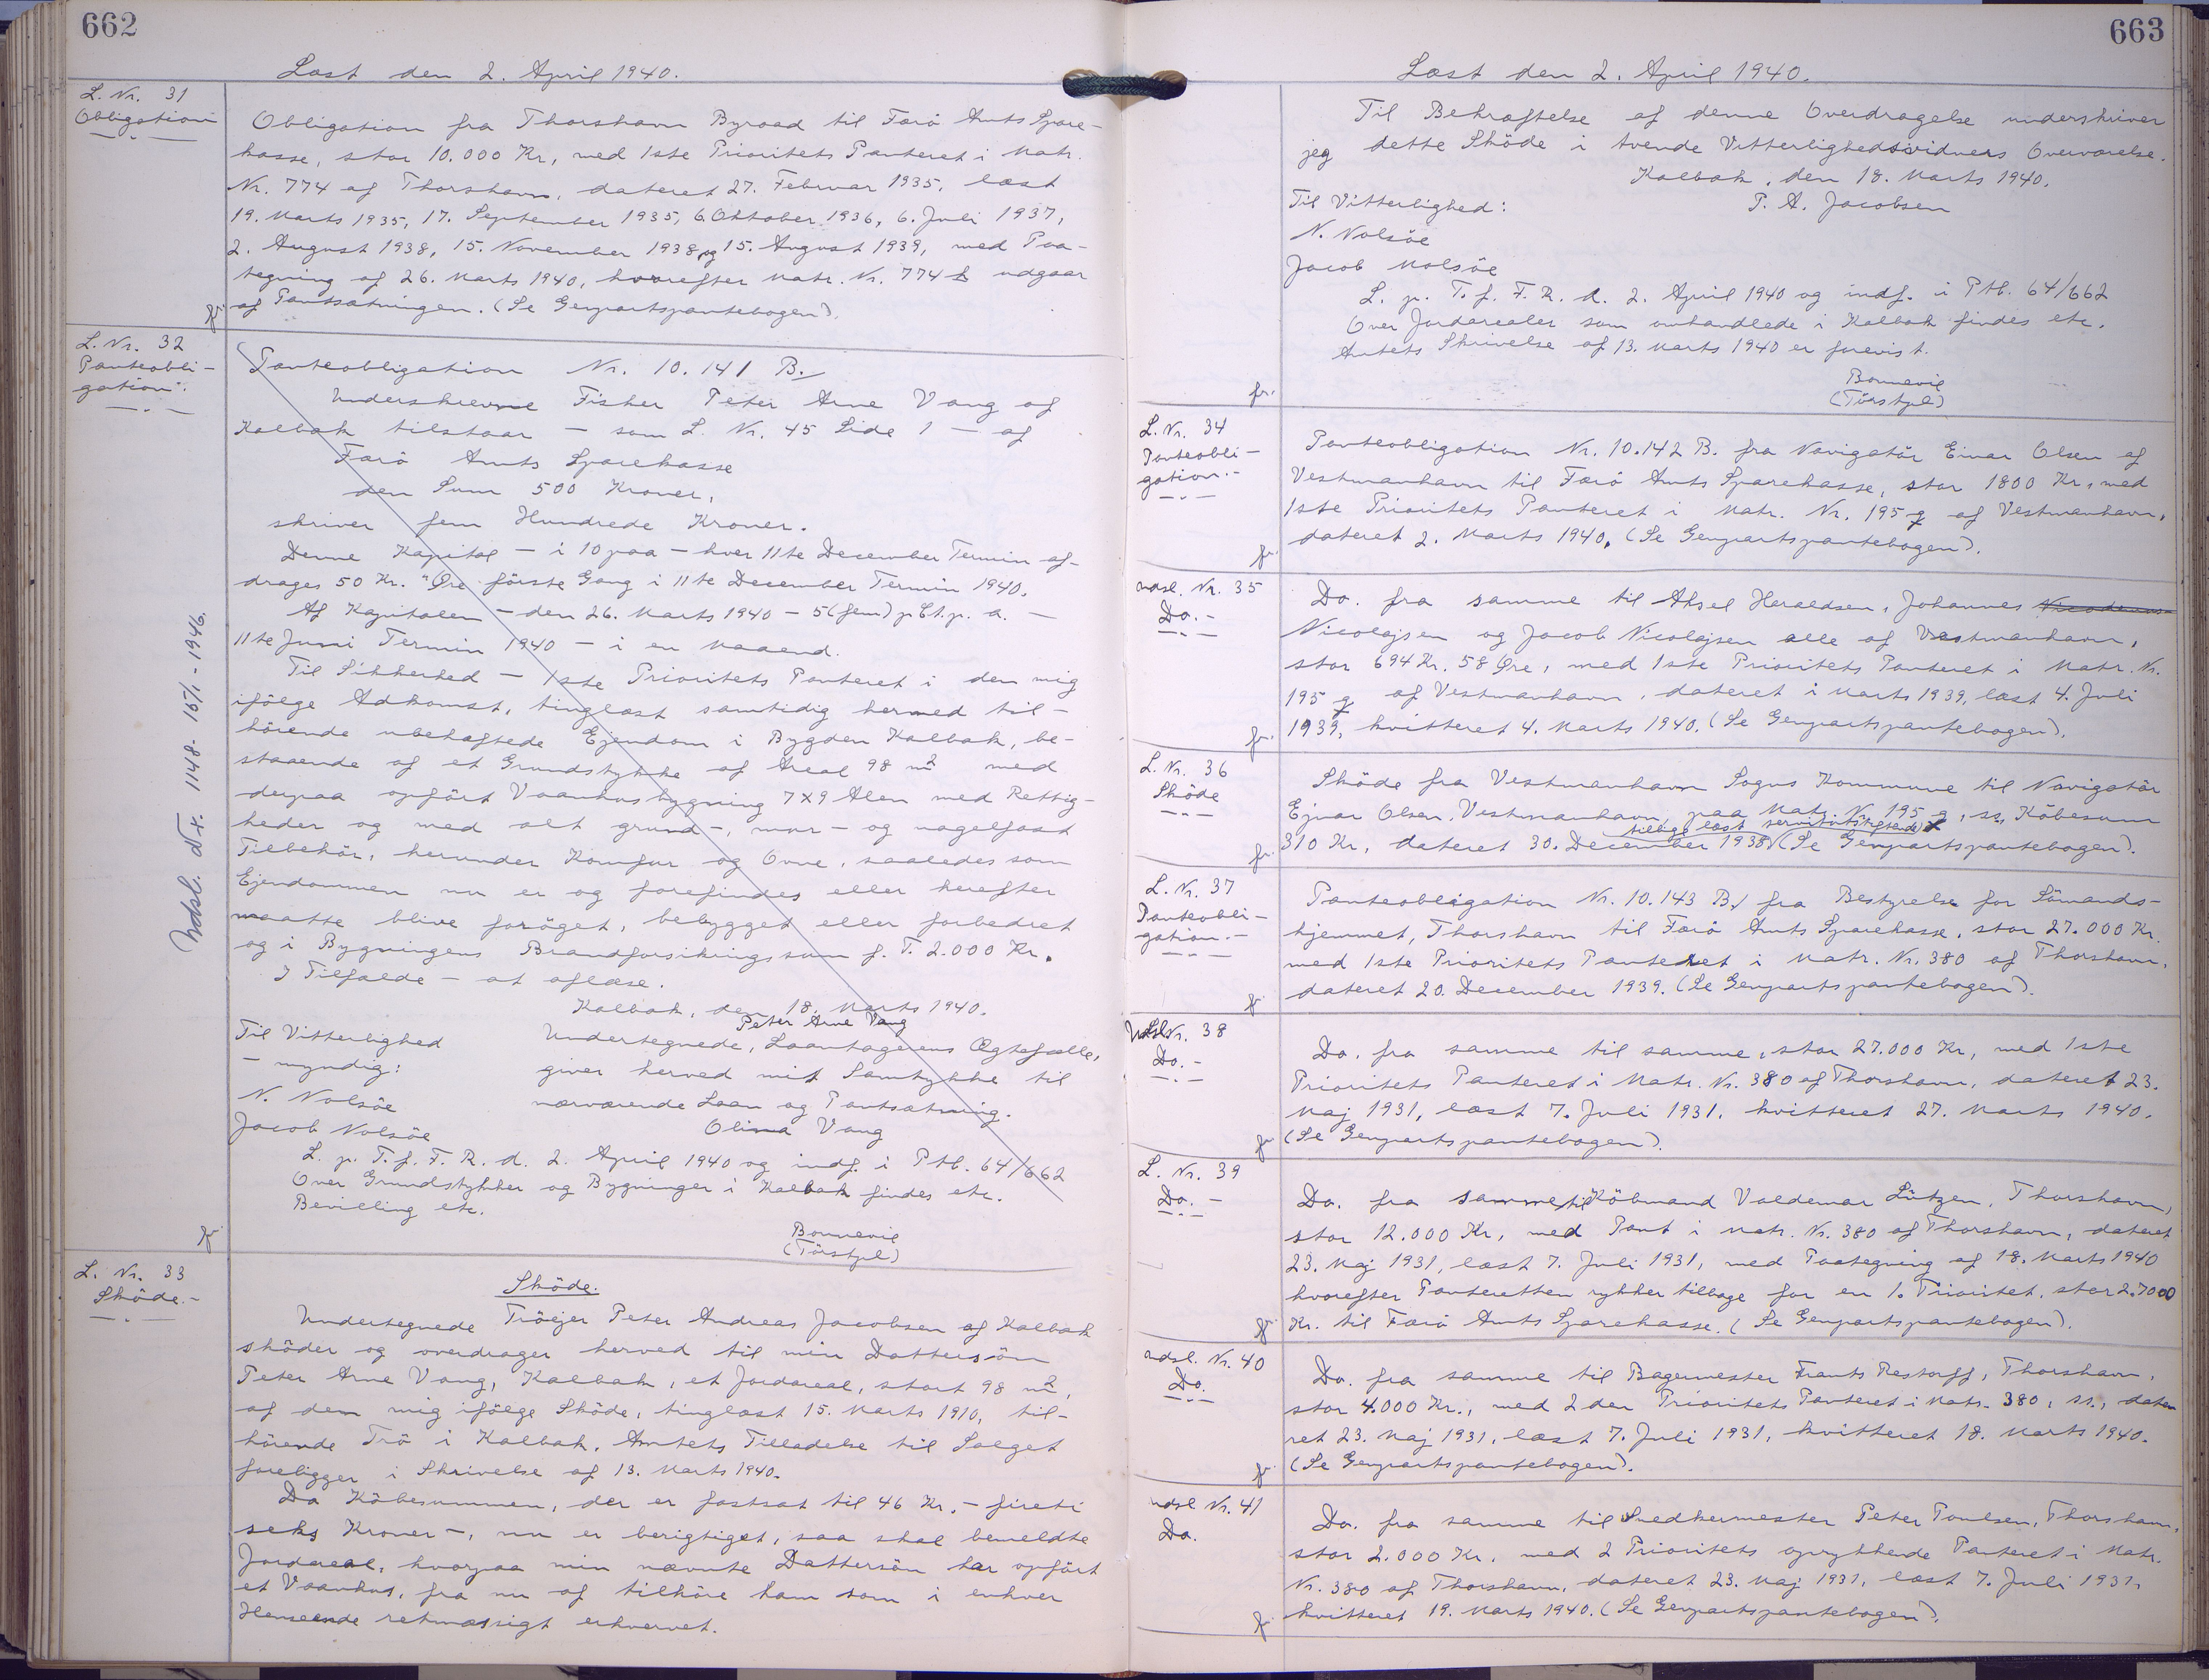 662
Læst den 2. April 1940.
L. Nr. 31
Obligation
Obligation fra Thorshavn Byraad til Færö Amts Spare-
kasse, stor 10.000 Kr, med 1ste Prioritets Panteret i Matr.
Nr. 774 af Thorshavn, dateret 27. Februar 1935, læst
19. Marts 1935, 17. September 1935, 6. Oktober 1936, 6. Juli 1937,
2. August 1938, 15. November 1938 og 15. August 1939, med Paa-
tegning af 26. Marts 1940, hvorefter Matr. Nr. 774 b udgaar
af Pantsætningen. (Se Genpartspantebogen).
L. Nr. 32
Panteobli-
gation.
Udsl. Nr. 1148 - 15/1 - 1946.
Panteobligation Nr. 10.141 B.
Underskrevne Fisker Peter Arne Vang af
Kalbak tilstaar - som L. Nr. 45 Side 1 - af
Færö Amts Sparekasse
den Sum 500 Kroner,
skriver fem Hundrede Kroner.
Denne Kapital - i 10 paa - hver 11te December Termin af-
drages 50 Kr. " Øre förste Gang i 11te December Termin 1940.
Af Kapitalen - den 26. Marts 1940 - 5 (fem) p Ct. p. a. -
11te Juni Termin 1940 - i en Maaned.
Til Sikkerhed - 1ste Prioritets Panteret i den mig
ifölge Adkomst, tinglæst samtidig hermed til-
hörende ubehæftede Ejendom i Bygden Kalbak, be-
staaende af et Grundstykke af Areal 98 m2 med
derpaa opfört Vaanhusbygning 7 x 9 Alen med Rettig-
heder og med alt grund-, mur- og nagelfast
Tilbehör, herunder Komfur og Ovne, saaledes som
Ejendommen nu er og forefindes eller herefter
maatte blive foröget, bebygget eller forbedret
og i Bygningens Brandforsikringssum f. T. 2.000 Kr.
I Tilfælde - at aflæse.
Kalbak, den 18. Marts 1940.
Peter Arne Vang
Til Vitterlighed Undertegnede, Laantagerens Ægtefælle,
- myndig: giver herved mit Samtykke til
N. Nolsöe nærværende Laan og Pantsætning.
Jacob Nolsöe Olina Vang
L. p. T. f. F. R. d. 2. April 1940 og indf. i Ptb. 64/662
Over Grundstykker og Bygninger i Kalbak findes etc.
Bevilling etc.
Bonnevie
(Törstpl)
L. Nr. 33
Sköde.-
Sköde.
Undertegnede Tröejer Peter Andreas Jacobsen af Kalbak
sköder og overdrager herved til min Dattersön
Peter Arne Vang, Kalbak, et Jordareal, stort 98 m2,
af den mig ifölge Sköde, tinglæst 15. Marts 1910, til-
hörende Trö i Kalbak. Amtets Tilladelse til Salget
foreligger i Skrivelse af 13. Marts 1940.
Da Köbesummen, der er fastsat til 46 Kr. - fireti
seks Kroner -, nu er berigtiget, saa skal bemeldte
Jordareal, hvorpaa min nævnte Dattersön har opfört
et Vaanhus, fra nu af tilhöre ham som i enhver
Henseende retmæssigt erhvervet.
663
Læst den 2. April 1940.
Til Bekræftelse af denne Overdragelse underskriver
jeg dette Sköde i tvende Vitterlighedsvidners Overværelse.
Kalbak, den 18. Marts 1940.
Til Vitterlighed: P. A. Jacobsen
N. Nolsöe
Jacob Nolsöe
L. p. T. f. F. R. d. 2. April 1940 og indf. i Ptb. 64/662
Over Jordarealer som omhandlede i Kalbak findes etc.
Amtets Skrivelse af 13. Marts 1940 er forevist.
Bonnevie
(Törstpl)
L. Nr. 34
Panteobli-
gation.-
Panteobligation Nr. 10.142 B. fra Navigatör Einar Olsen af
Vestmanhavn til Færö Amts Sparekasse, stor 1800 Kr, med
1ste Prioritets Panteret i Matr. Nr. 195 g af Vestmanhavn,
dateret 2. Marts 1940. (Se Genpartspantebogen).
udsl. Nr. 35
Do.-
Do. fra samme til Aksel Heraldsen, Johannes
Nicolajsen og Jacob Nicolajsen alle af Vestmanhavn,
stor 694 Kr. 58 Øre, med 1ste Prioritets Panteret i Matr. Nr.
195 g af Vestmanhavn, dateret i Marts 1939, læst 4. Juli
1939, kvitteret 4. Marts 1940. (Se Genpartspantebogen).
L. Nr. 36
Sköde
Sköde fra Vestmanhavn Sogns Kommune til Navigatör
Ejnar Olsen, Vestmanhavn, paa Matr. Nr. 195 g, ss, Köbesum
tillige læst servitutstiftende
310 Kr, dateret 30. December 1938 (Se Genpartspantebogen).
L. Nr. 37
Panteobli-
gation.-
Panteobligation Nr. 10.143 B, fra Bestyrelse for Sömands-
hjemmet, Thorshavn til Færö Amts Sparekasse, stor 27.000 Kr.
med 1ste Prioritets Panteret i Matr. Nr. 380 af Thorshavn,
dateret 20. December 1939. (Se Genpartspantebogen).
Udsl Nr. 38
Do.-
Do. fra samme til samme, stor 27.000 Kr, med 1ste
Prioritets Panteret i Matr. Nr. 380 af Thorshavn, dateret 23.
Maj 1931, læst 7. Juli 1931, kvitteret 27. Marts 1940.
(Se Genpartspantebogen).
L. Nr. 39
Do.-
Do. fra samme til Köbmand Valdemar Lützen, Thorshavn,
stor 12.000 Kr, med Pant i Matr. Nr. 380 af Thorshavn, dateret
23. Maj 1931, læst 7. Juli 1931, med Paategning af 18. Marts 1940
hvorefter Panteretten rykker tilbage for en 1. Prioritet, stor 27000
Kr. til Færö Amts Sparekasse. (Se Genpartspantebogen).
udsl. Nr. 40
Do.
Do. fra samme til Bagermester Frants Restorff, Thorshavn,
stor 4.000 Kr., med 2den Prioritets Panteret i Matr. 380, ss., date
ret 23. Maj 1931, læst 7. Juli 1931, kvitteret 18. Marts 1940.
(Se Genpartspantebogen).
udsl Nr. 41
Do.
Do. fra samme til Snedkermester Peter Poulsen, Thorshavn,
stor 2.000 Kr, med 2 Prioritets oprykkende Panteret i Matr.
Nr. 380 af Thorshavn, dateret 23. Maj 1931, læst 7. Juli 1931,
kvitteret 19. Marts 1940. (Se Genpartspantebogen).